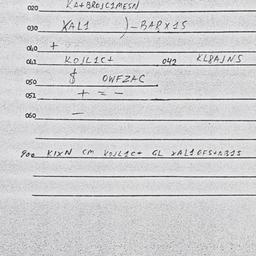 020 KA+BROJC1MESN
030 XAL1 )-BARX1S
040 +
041 KOJL1C+ 042 KLRAJNS
050 $ OWFZAC
051 + = -
060 -
900 KIXN CM KOJL1C+ GL